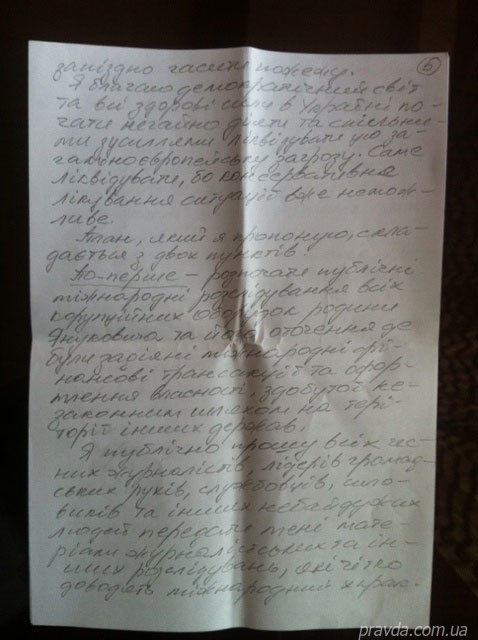 запізно гасити пожежу.
5
Я благаю демократичний світ
та всі здорові сили в Україні по-
чати негайно діяти та спільни-
ми зусиллями ліквідувати цю за-
гальноєвропейську загрозу. Саме
ліквідувати, бо консервативне
лікування ситуації вже немож-
ливе.
План, який я пропоную, скла-
дається з двох пунктів.
По-перше – розпочати публічні
міжнародні розслідування всіх
корупційних оборудок родини
Януковича та його оточення де
були задіяні міжнародні фі-
нансові трансакції та офор-
млення власності, здобутої не-
законним шляхом на тери-
торії інших держав.
Я публічно прошу всіх чес-
них журналістів, лідерів громад-
ських рухів, службовців, сило-
виків та інших небайдужих
людей передати мені мате-
ріали журналістських та ін-
ших розслідувань, які чітко
доводять міжнародний харак-
pravda.com.ua